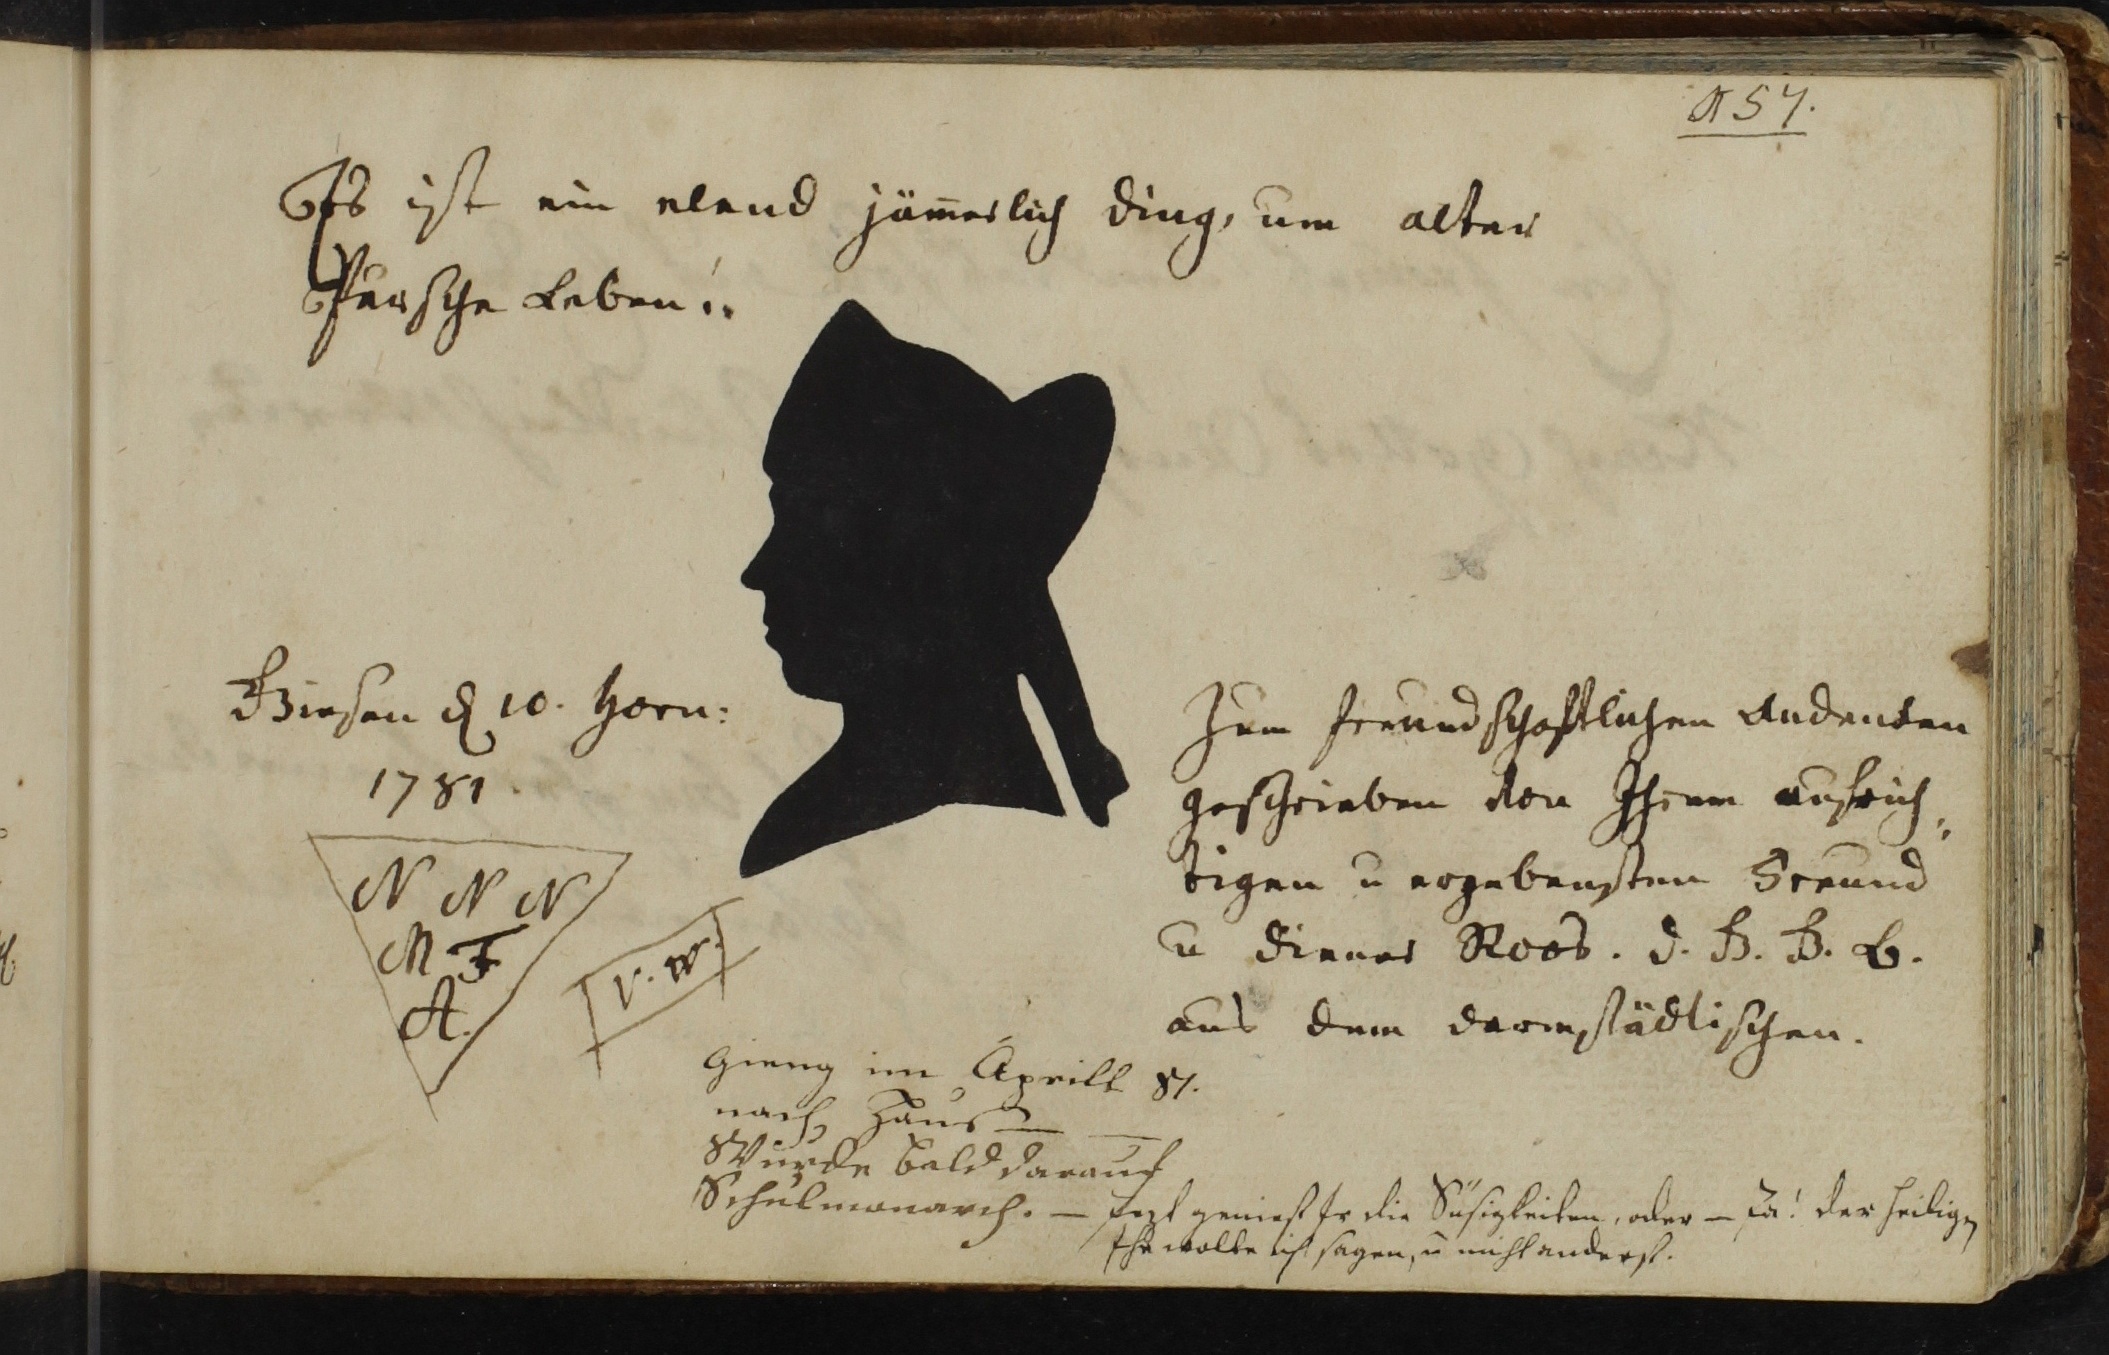 A 57.
Es ist ein elend jämerlich Ding, um alter
Pursche Leben!
Giesen d 10. Horn:
1781.
N N N
M F
A.
V. W.
Zum freundschaftlichen Andenken
geschrieben von Ihrem aufrich
tigen u ergebensten Freund
u Diener Roos. d. G. G. B.
aus dem darmstädtischen.
Gieng im Aprill 81.
nach Haus —
Wurde bald darauf
Schulmonarch. — jezt geniest Er die Süsigkeiten, oder — ja! der heiligen
Ehe wolte ich sagen, u nicht anderst.